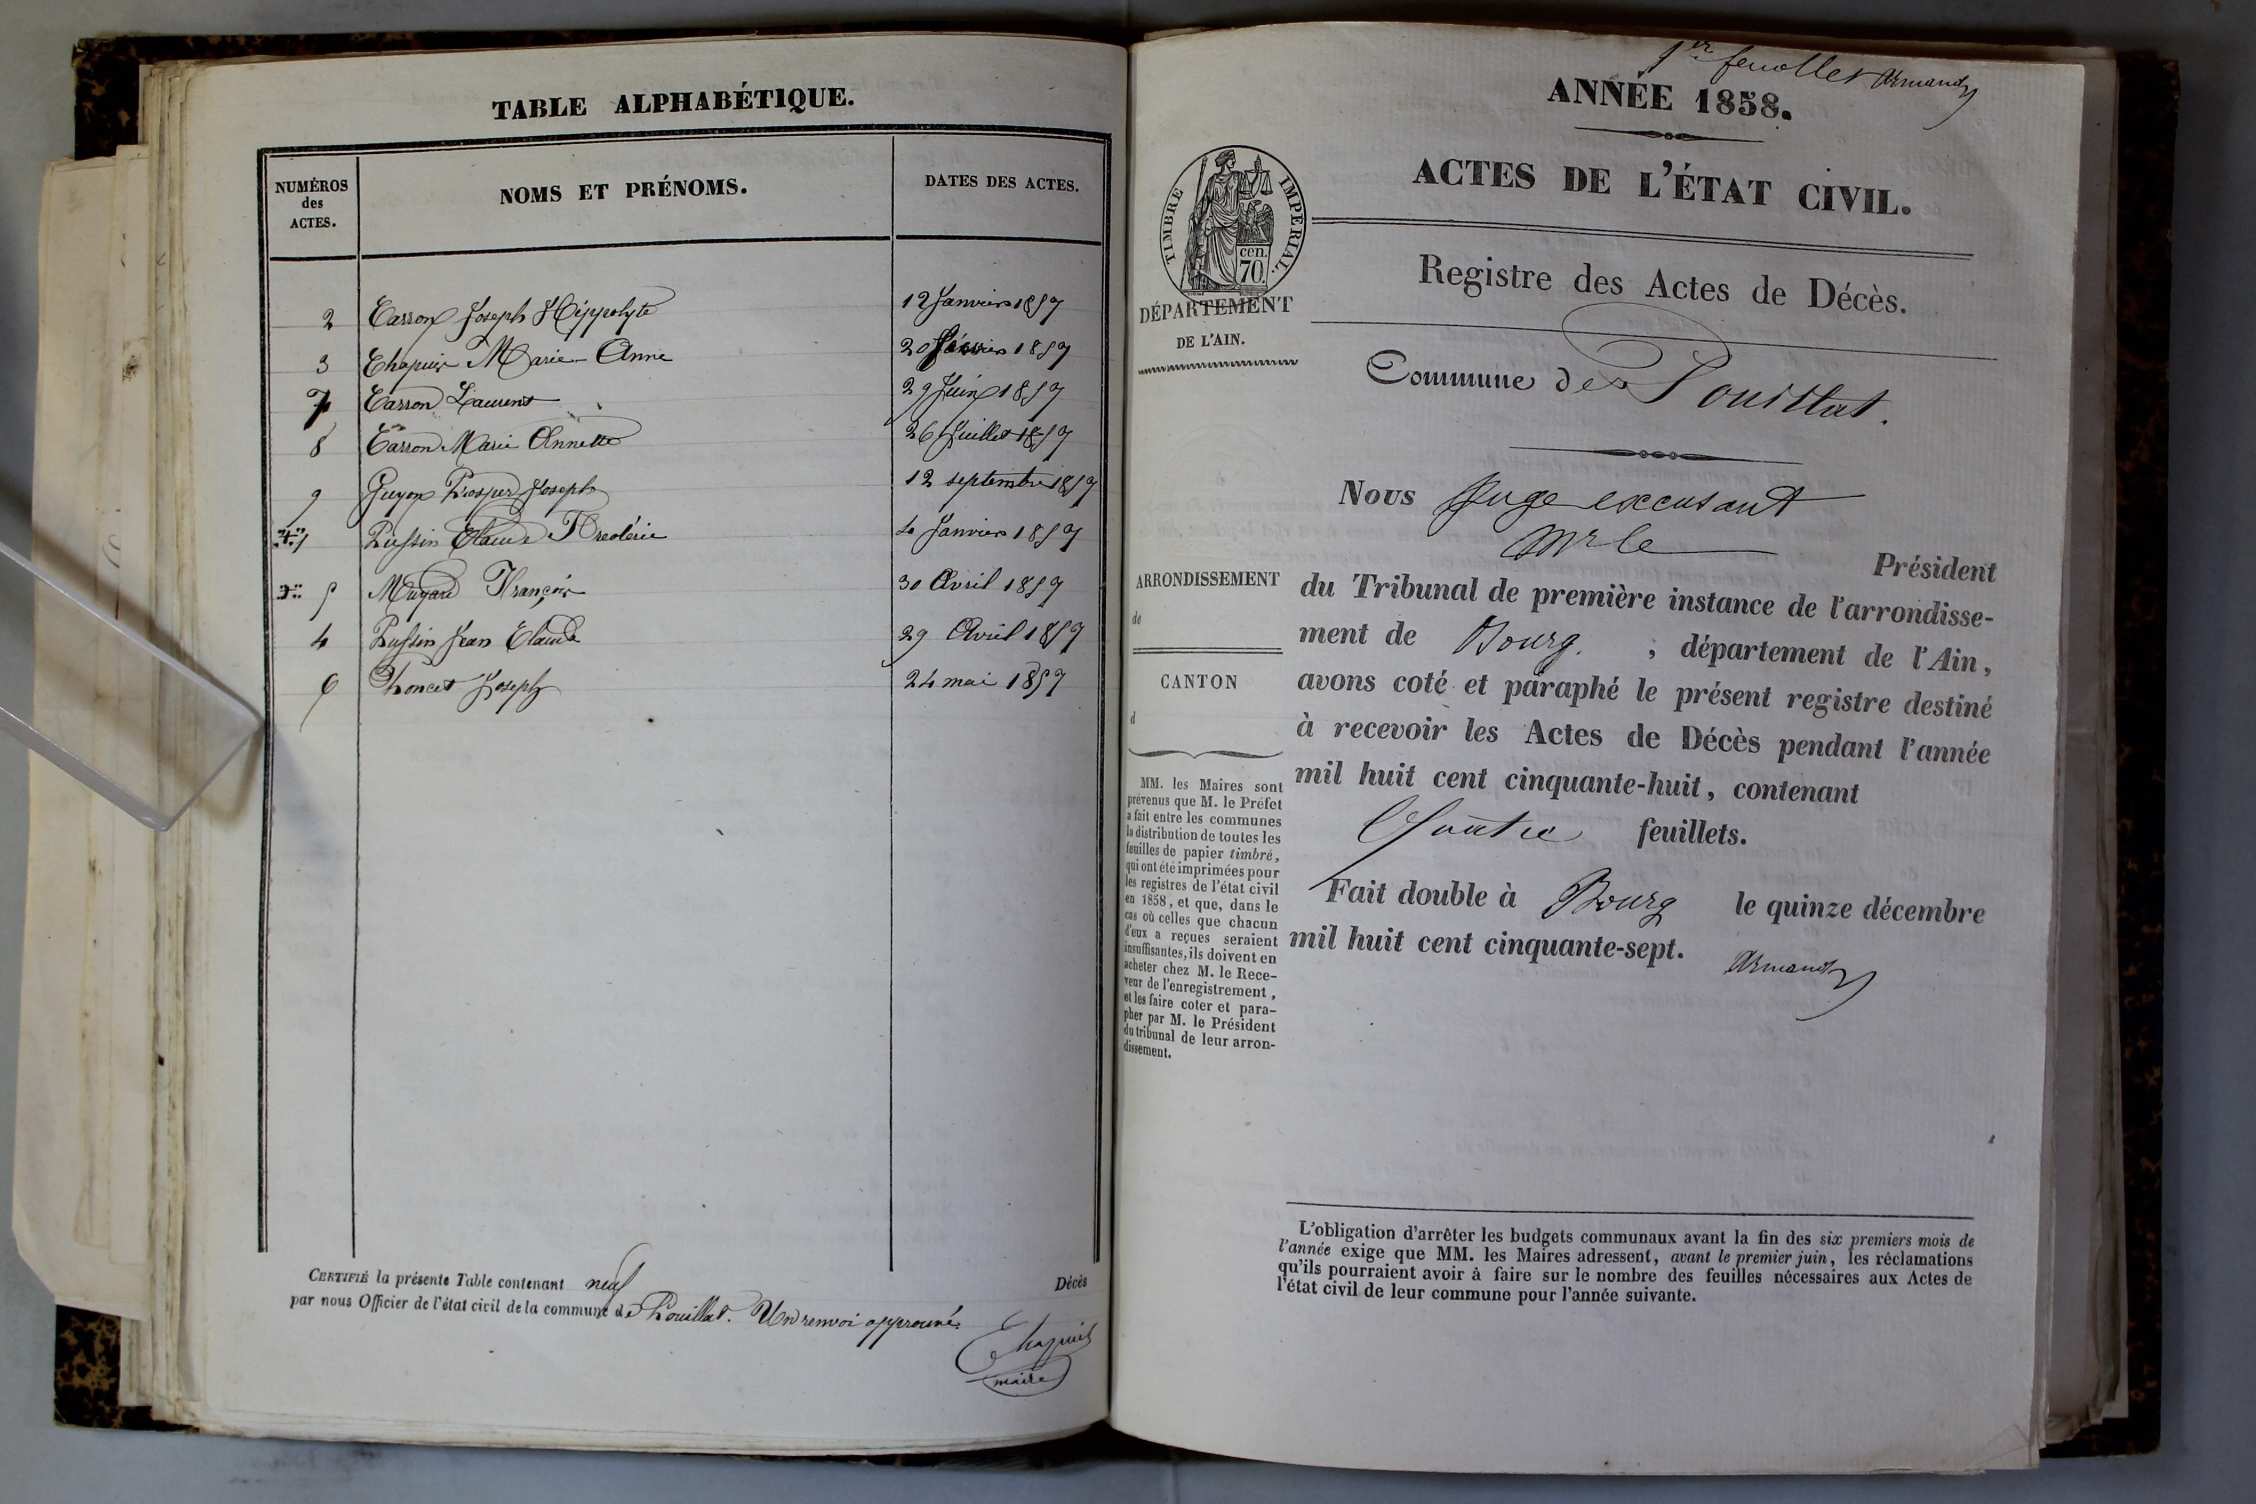 TABLE ALPHABÉTIQUE.
NUMÉROS
des
ACTES.
NOMS ET PRÉNOMS.
DATES DES ACTES.
2 Carron Joseph Hippolyte 12 Janvier 1857
3 Chapuis Marie Anne 20 1857
7 Carron Laurent 29 Juin 1857
8 Carron Marie Annette 26 Juillet 1857
9 Guyon Prosper Joseph 12 septembre 1857
1 Pussin Claude 4 Janvier 1857
5 François 30 Avril 1857
4 Pussin Jean Claude 29 Avril 1857
6 Poncet Joseph 24 mai 1857
CERTIFIÉ la présente Table contenant neuf Décès
par nous Officier de l'état civil de la commune de Pouillat. Un renvoi approuvé.
Chapuis
maire
1er feuillet Armand
ANNÉE 1858.
ACTES DE L'ÉTAT CIVIL.
TIMBRE IMPERIAL.
cen.
70
DÉPARTEMENT
DE L'AIN.
Registre des Actes de Décès.
Commune de Pouillat.
Nous Juge excusant
Mr le Président
du Tribunal de première instance de l'arrondisse-
ment de Bourg. ; département de l'Ain,
avons coté et paraphé le présent registre destiné
à recevoir les Actes de Décès pendant l'année
mil huit cent cinquante-huit, contenant
Quatre feuillets.
Fait double à Bourg le quinze décembre
mil huit cent cinquante-sept.
Armand
ARRONDISSEMENT
de
CANTON
d
MM. les Maires sont
prévenus que M. le Préfet
a fait entre les communes
la distribution de toutes les
feuilles de papier timbré,
qui ont été imprimées pour
les registres de l'état civil
en 1858, et que, dans le
cas où celles que chacun
d'eux a reçues seraient
insuffisantes, ils doivent en
acheter chez M. le Rece-
veur de l'enregistrement,
et les faire coter et para-
pher par M. le Président
du tribunal de leur arron-
dissement.
L'obligation d'arrêter les budgets communaux avant la fin des six premiers mois de
l'année exige que MM. les Maires adressent, avant le premier juin, les réclamations
qu'ils pourraient avoir à faire sur le nombre des feuilles nécessaires aux Actes de
l'état civil de leur commune pour l'année suivante.